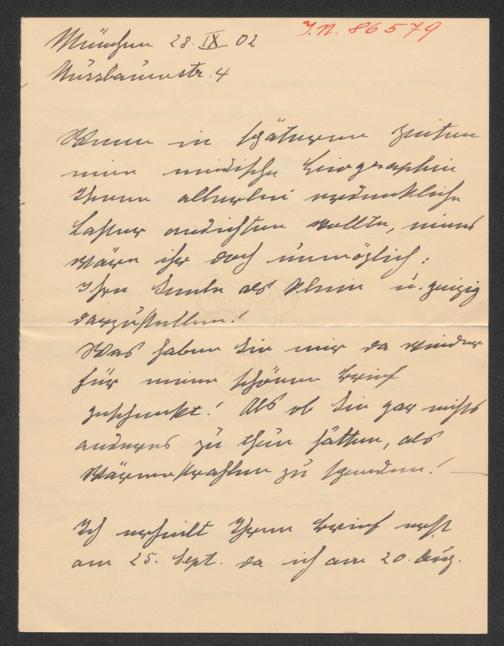 München 28. IX 02
J.N. 86579
Nussbaumstr. 4
Wenn in späteren Zeiten
eine neidische Biographin
Ihnen allerlei
Laster andichten wollte, eines
wäre ihr doch unmöglich:
Ihre Seele als klein u. geizig
darzustellen!
Was haben Sie mir da wieder
für einen schönen Brief
geschenkt! Als ob Sie gar nichts
anderes zu thun hätten, als
Wärmestrahlen zu spenden! —
Ich erhielt Ihren Brief erst
am 25. Sept. da ich am 20. Aug.